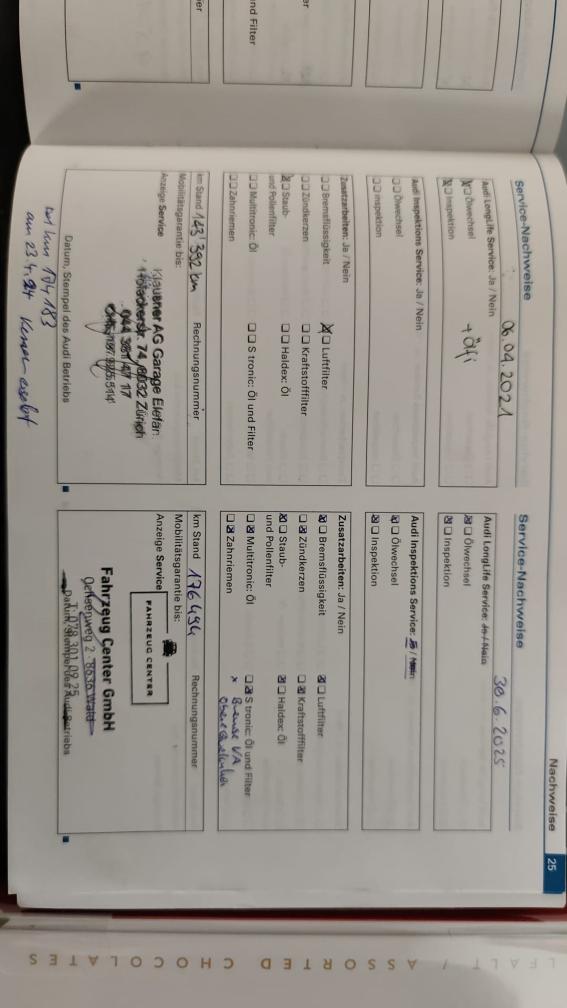 nd Filter
Nachweise
25
Service-Nachweise
06.04.2021
Audi LongLife Service: Ja / Nein
Ölwechsel
Inspektion
Audi Inspektions Service: Ja / Nein
Ölwechsel
Inspektion
Zusatzarbeiten: Ja / Nein
Bremsflüssigkeit
Luftfilter
Zündkerzen
Kraftstofffilter
Staub-
und Pollenfilter
Haldex: Öl
Multitronic: Öl
S tronic: Öl und Filter
Zahnriemen
km Stand 143'392 km
Rechnungsnummer
Mobilitätsgarantie bis:
Anzeige Service
Klausner AG Garage Elefan
74, 8032 Zürich
Datum, Stempel des Audi Betriebs
km 174183
am 23.4.24
Service-Nachweise
30.6.2025
Audi LongLife Service: Ja / Nein
Ölwechsel
Inspektion
Audi Inspektions Service: Ja / Nein
Ölwechsel
Inspektion
Zusatzarbeiten: Ja / Nein
Bremsflüssigkeit
Luftfilter
Zündkerzen
Kraftstofffilter
Staub-
und Pollenfilter
Haldex: Öl
Multitronic: Öl
S tronic: Öl und Filter
Zahnriemen
x Bremse VA
km Stand 176494
Rechnungsnummer
Mobilitätsgarantie bis:
Anzeige Service
FAHRZEUG CENTER
Fahrzeug Center GmbH
Ochsenweg 2 - 8636 Wald
T: 078 301 09 25
Datum, Stempel des Audi Betriebs
LFALT / ASSORTED CHOCOLATES